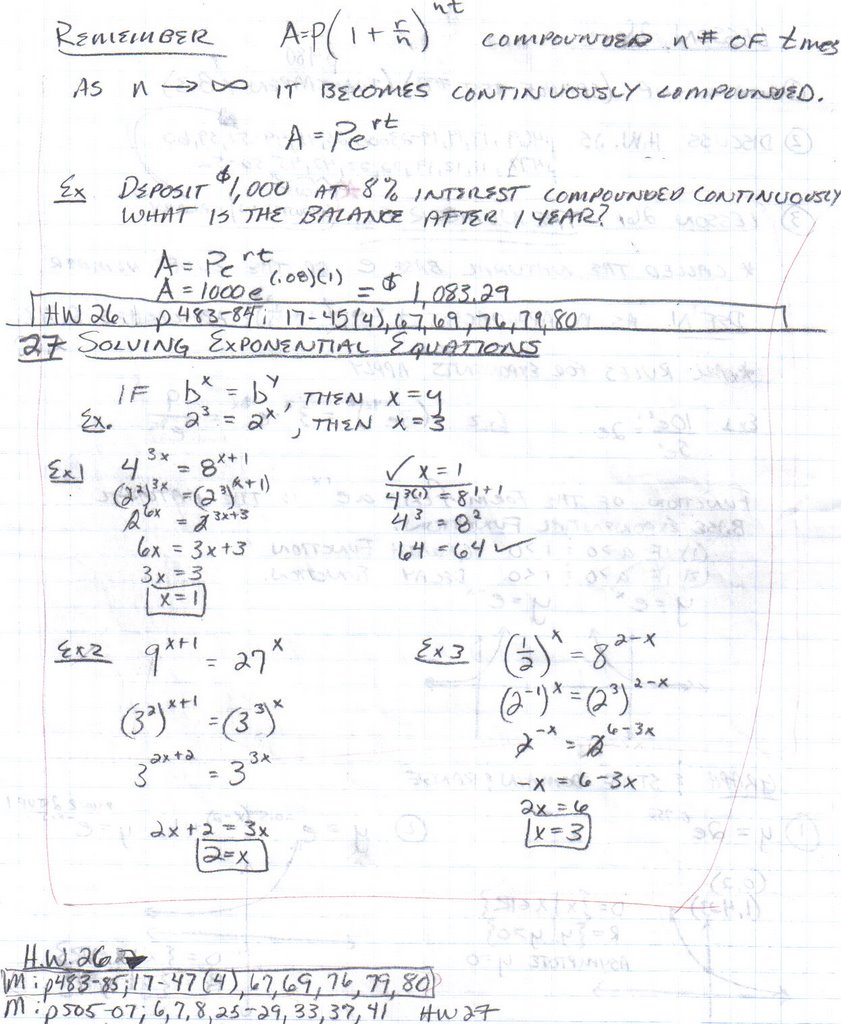 REMEMBER A=P(1 + r/n)^nt COMPOUNDED n # OF times
AS n → ∞ IT BECOMES CONTINUOUSLY COMPOUNDED.
A = Pe^rt
Ex DEPOSIT $1,000 AT 8% INTEREST COMPOUNDED CONTINUOUSLY
WHAT IS THE BALANCE AFTER 1 YEAR?
A = Pe^rt
A = 1000e^(.08)(1) = $1,083.29
HW 26 p483-84; 17-45(4), 67, 69, 76, 79, 80
27 SOLVING EXPONENTIAL EQUATIONS
IF b^x = b^y, THEN x = y
Ex. 2^3 = 2^x, THEN x = 3
Ex1 4^3x = 8^x+1
(2^2)^3x = (2^3)^(x+1)
2^6x = 2^3x+3
6x = 3x+3
3x = 3
x = 1
✓ x = 1
4^3(1) = 8^1+1
4^3 = 8^2
64 = 64 ✓
Ex2 9^x+1 = 27^x
(3^2)^x+1 = (3^3)^x
3^2x+2 = 3^3x
2x + 2 = 3x
2 = x
Ex3 (1/2)^x = 8^2-x
(2^-1)^x = (2^3)^2-x
2^-x = 2^6-3x
-x = 6-3x
2x = 6
x = 3
H.W. 26
M: p483-85; 17-47(4), 67, 69, 76, 79, 80
M: p505-07; 6, 7, 8, 25-29, 33, 37, 41 HW 27